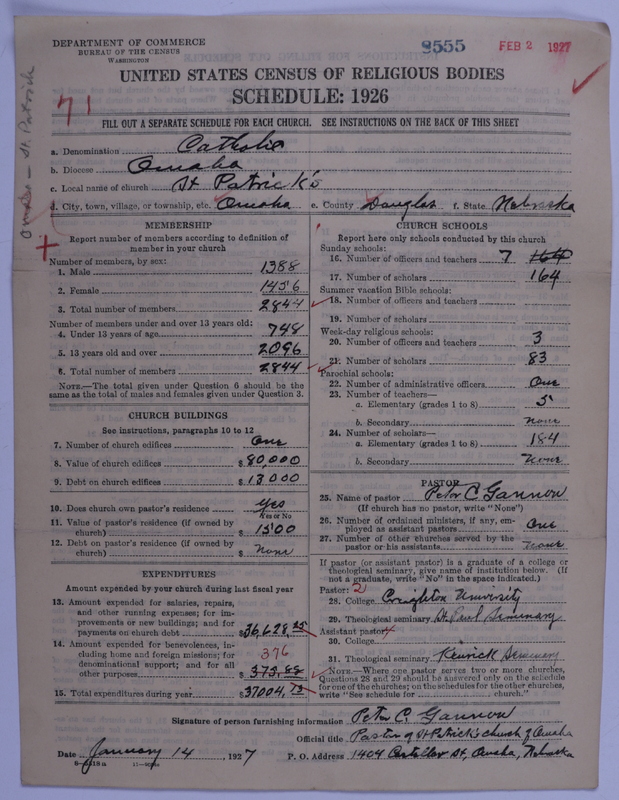 DEPARTMENT OF COMMERCE
BUREAU OF THE CENSUS
WASHINGTON
8555
FEB 2 1927
UNITED STATES CENSUS OF RELIGIOUS BODIES
SCHEDULE: 1926
71
Omaha — St. Patrick
FILL OUT A SEPARATE SCHEDULE FOR EACH CHURCH. SEE INSTRUCTIONS ON THE BACK OF THIS SHEET
a. Denomination Catholic
b. Diocese Omaha
c. Local name of church St Patrick's
d. City, town, village, or township, etc. Omaha e. County Douglas f. State Nebraska
MEMBERSHIP
Report number of members according to definition of
member in your church
Number of members, by sex:
1. Male 1388
2. Female 1456
3. Total number of members 2844
Number of members under and over 13 years old:
4. Under 13 years of age 748
5. 13 years old and over 2096
6. Total number of members 2844
NOTE.—The total given under Question 6 should be the
same as the total of males and females given under Question 3.
CHURCH BUILDINGS
See instructions, paragraphs 10 to 12
7. Number of church edifices One
8. Value of church edifices $ 80,000
9. Debt on church edifices $ 13000
10. Does church own pastor's residence? Yes
Yes or No
11. Value of pastor's residence (if owned by
church) $ 1500
12. Debt on pastor's residence (if owned by
church) $ None
EXPENDITURES
Amount expended by your church during last fiscal year
13. Amount expended for salaries, repairs,
and other running expenses; for im-
provements or new buildings; and for
payments on church debt $ 36,628.25
14. Amount expended for benevolences, in-
cluding home and foreign missions; for
denominational support; and for all
other purposes 376
$ 375.88
15. Total expenditures during year $ 37004.13
CHURCH SCHOOLS
Report here only schools conducted by this church
Sunday schools:
16. Number of officers and teachers 7 164
17. Number of scholars 164
Summer vacation Bible schools:
18. Number of officers and teachers
19. Number of scholars
Week-day religious schools:
20. Number of officers and teachers 3
21. Number of scholars 83
Parochial schools:
22. Number of administrative officers One
23. Number of teachers—
a. Elementary (grades 1 to 8) 5
b. Secondary None
24. Number of scholars—
a. Elementary (grades 1 to 8) 184
b. Secondary None
PASTOR
25. Name of pastor Peter C. Gannon
(If church has no pastor, write "None")
26. Number of ordained ministers, if any, em-
ployed as assistant pastors One
27. Number of other churches served by the
pastor or his assistants None
If pastor (or assistant pastor) is a graduate of a college or
theological seminary, give name of institution below. (If
not a graduate, write "No" in the space indicated.)
Pastor: 2
28. College Creighton University
29. Theological seminary St Paul Seminary
Assistant pastor:
30. College
31. Theological seminary Kenrick Seminary
NOTE.—Where one pastor serves two or more churches,
Questions 28 and 29 should be answered only on the schedule
for one of the churches; on the schedules for the other churches,
write "See schedule for church."
Signature of person furnishing information Peter C. Gannon
Official title Pastor of St Patrick's church of Omaha
Date January 14, 1927 P. O. Address 1404 Castellar St, Omaha, Nebraska